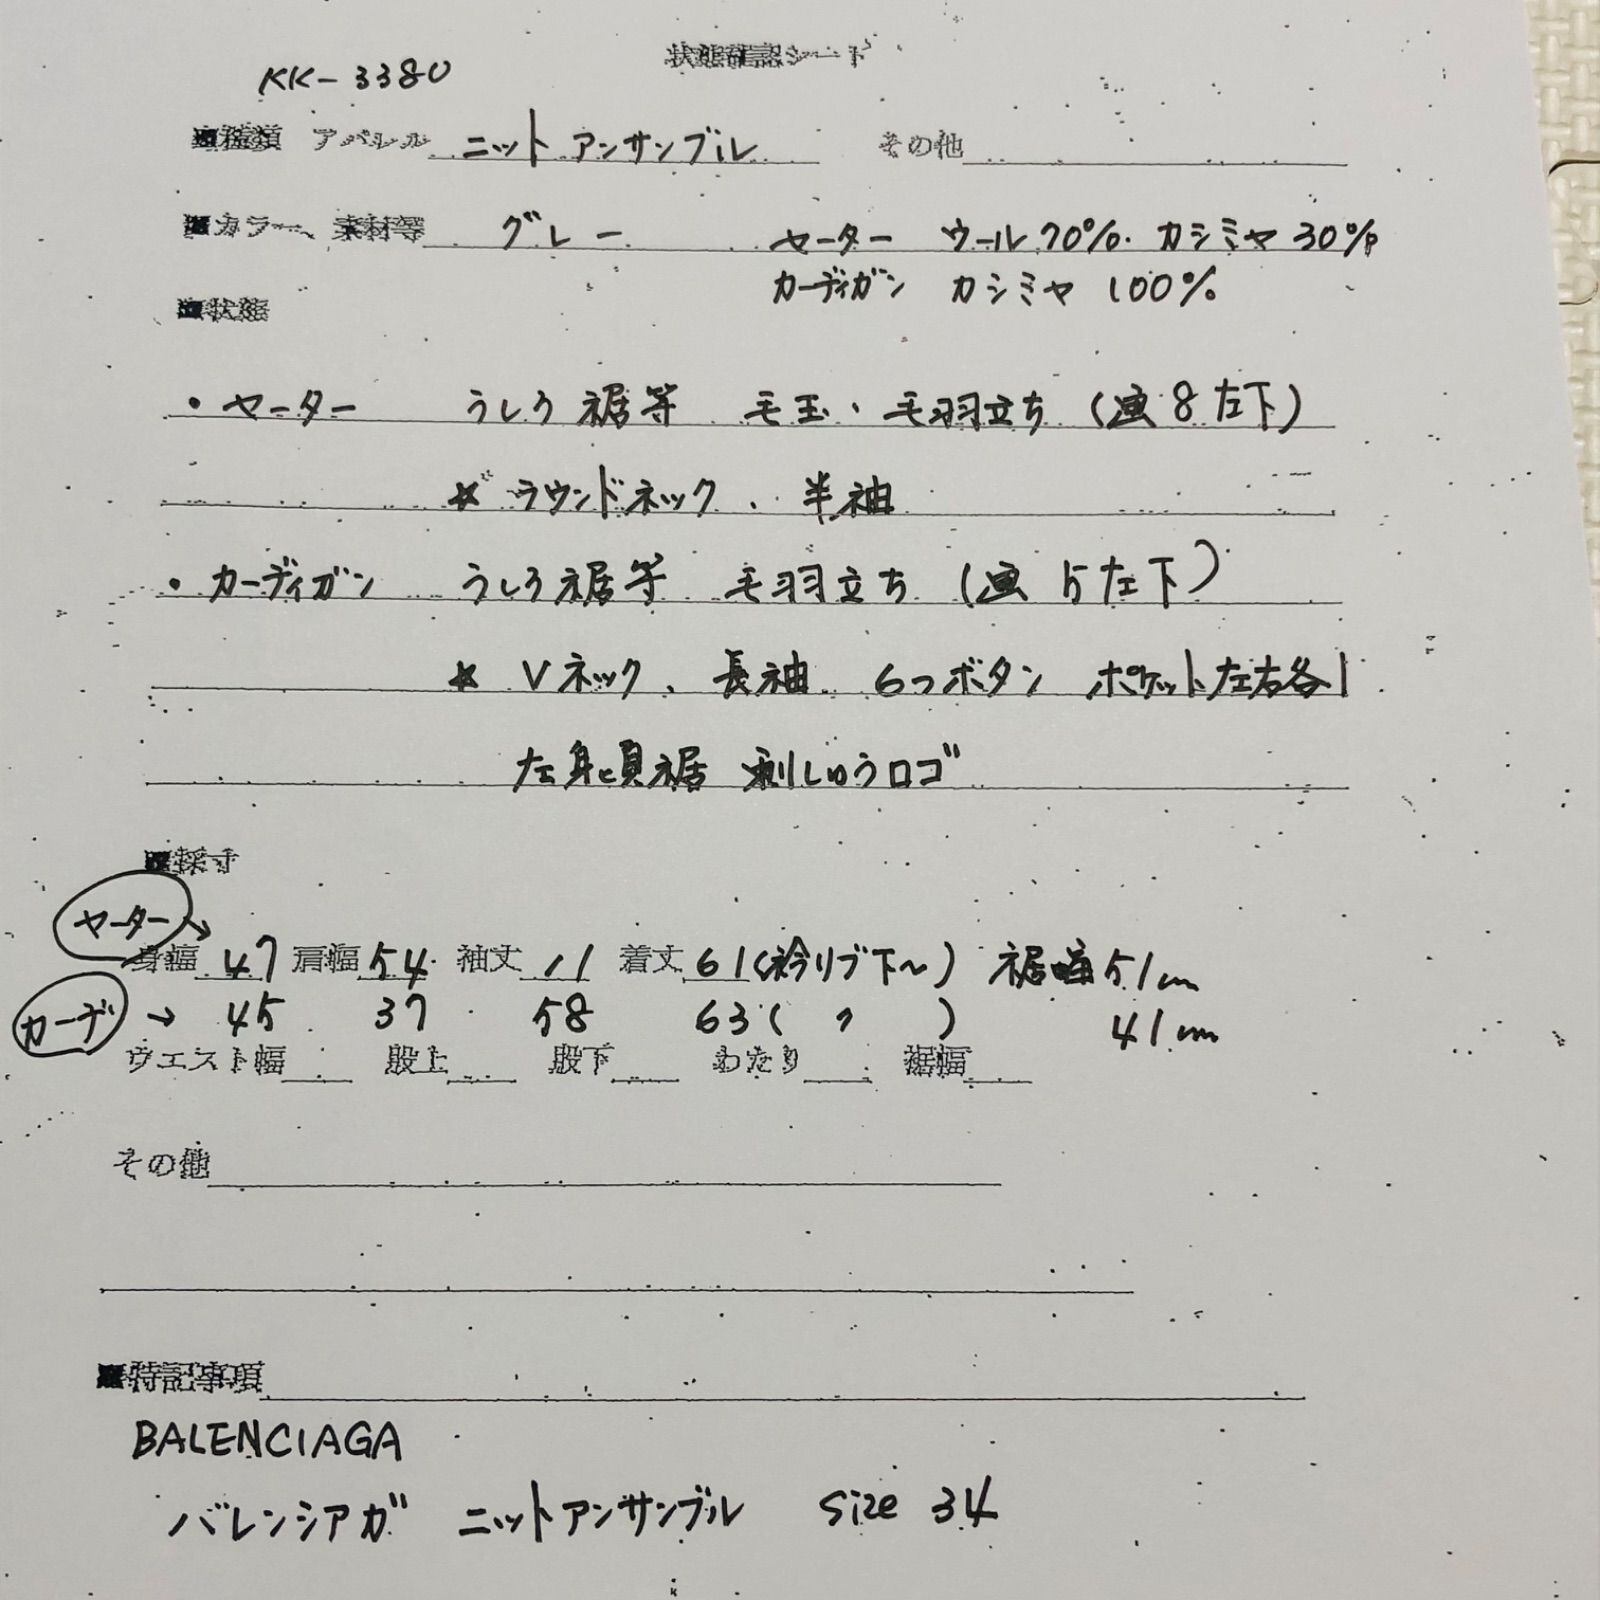 状態確認シート
KK-3380
■種類 アパレル ニットアンサンブル その他
■カラー、素材等 グレー セーター ウール70%. カシミヤ30%
カーディガン カシミヤ 100%
■状態
・セーター うしろ裾等 毛玉・毛羽立ち (画8左下)
☆ ラウンドネック、半袖
・カーディガン うしろ裾等 毛羽立ち (画5左下)
☆ Vネック、長袖 6つボタン ポケット左右各1
左身頃裾 刺しゅうロゴ
■採寸
セーター→
身幅 47 肩幅 54 袖丈 11 着丈 61(衿リブ下~) 裾幅51cm
カーデ → 45 37 58 63( 〃 ) 41cm
ウエスト幅 股上 股下 わたり 裾幅
その他
■特記事項
BALENCIAGA
バレンシアガ ニットアンサンブル size 34